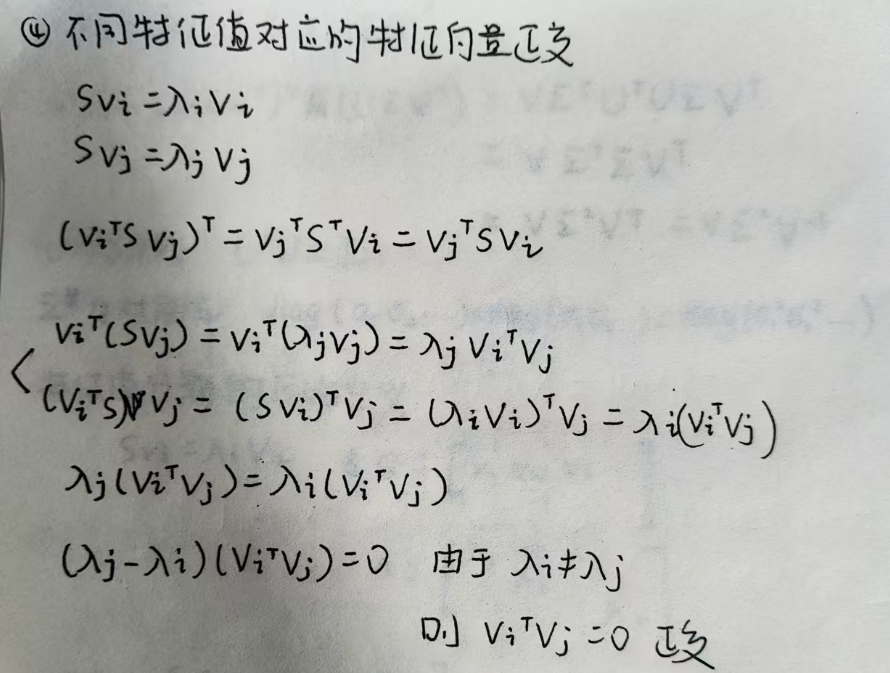 ④ 不同特征值对应的特征向量正交
Svi = λivi
Svj = λjvj
(viᵀSvj)ᵀ = vjᵀSᵀvi = vjᵀSvi
viᵀ(Svj) = viᵀ(λjvj) = λj viᵀvj
(viᵀS)vj = (Svi)ᵀvj = (λivi)ᵀvj = λi(viᵀvj)
λj(viᵀvj) = λi(viᵀvj)
(λj-λi)(viᵀvj) = 0 由于 λi≠λj
则 viᵀvj = 0 正交